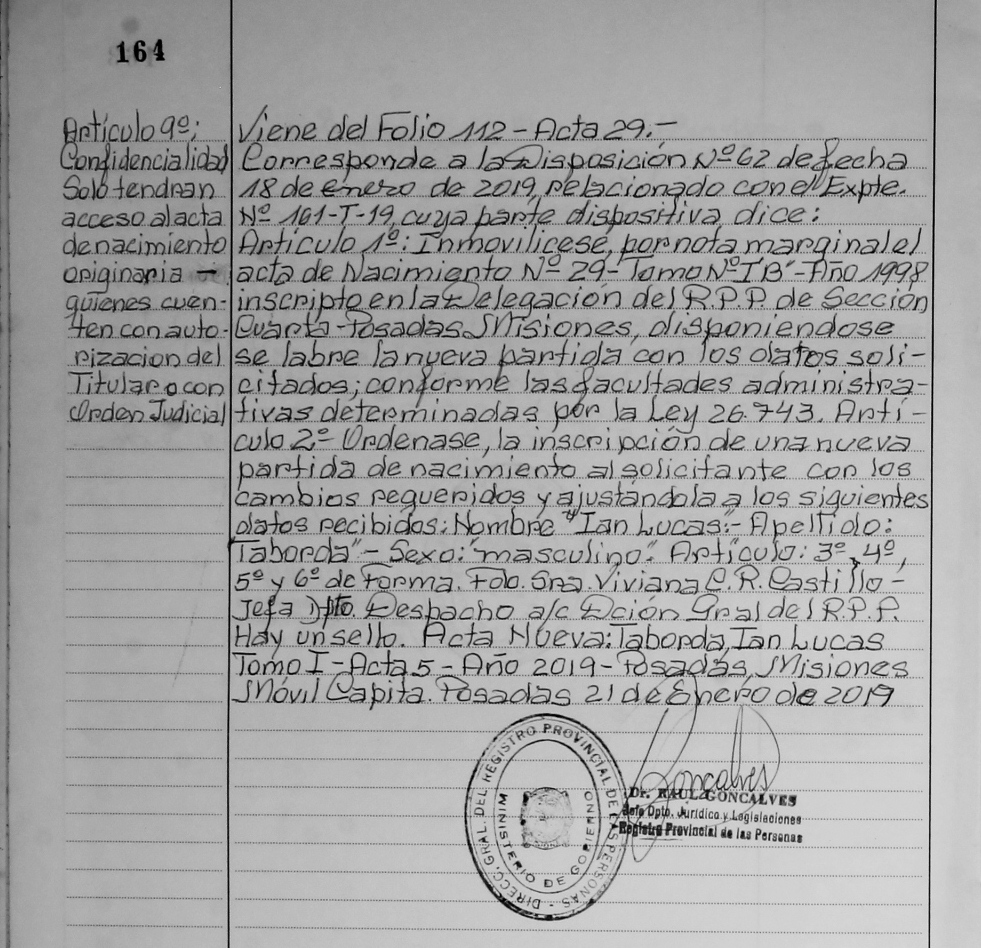 164
Artículo 9º:
Confidencialidad
Solo tendran
acceso al acta
de nacimiento
originaria -
quienes cuen-
ten con auto-
rizacion del
Titular o con
Orden Judicial
Viene del Folio 112 - Acta 29.-
Corresponde a la Disposición Nº 62 de fecha
18 de enero de 2019, relacionado con el Expte.
Nº 161-T-19, cuya parte dispositiva dice:
Artículo 1º: Inmovilícese, por nota marginal el
acta de Nacimiento Nº 29 - Tomo Nº "I B" - Año 1998
inscripto en la Delegación del R.P.P. de Sección
Cuarta - Posadas, Misiones, disponiendose
se labre la nueva partida con los datos soli-
citados; conforme las facultades administra-
tivas determinadas por la Ley 26.743. Artí-
culo 2º Ordenase, la inscripción de una nueva
partida de nacimiento al solicitante con los
cambios requeridos y ajustándola a los siguientes
datos recibidos: Nombre "Ian Lucas":- Apellido:
Taborda" - Sexo: "masculino". Artículo: 3º, 4º,
5º y 6º de Forma. Fdo. Sra. Viviana C.R. Castillo -
Jefa Dpto. Despacho a/c Dción Gral del R.P.P.
Hay un sello. Acta Nueva: Taborda, Ian Lucas
Tomo I - Acta 5 - Año 2019 - Posadas, Misiones
Móvil Capita. Posadas 21 de Enero de 2019
DIRECC. GRAL. DEL REGISTRO PROVINCIAL DE LAS PERSONAS -
MINISTERIO DE GOBIERNO
Goncalves
Dr. RAUL GONCALVES
Jefe Dpto. Jurídico y Legislaciones
Registro Provincial de las Personas